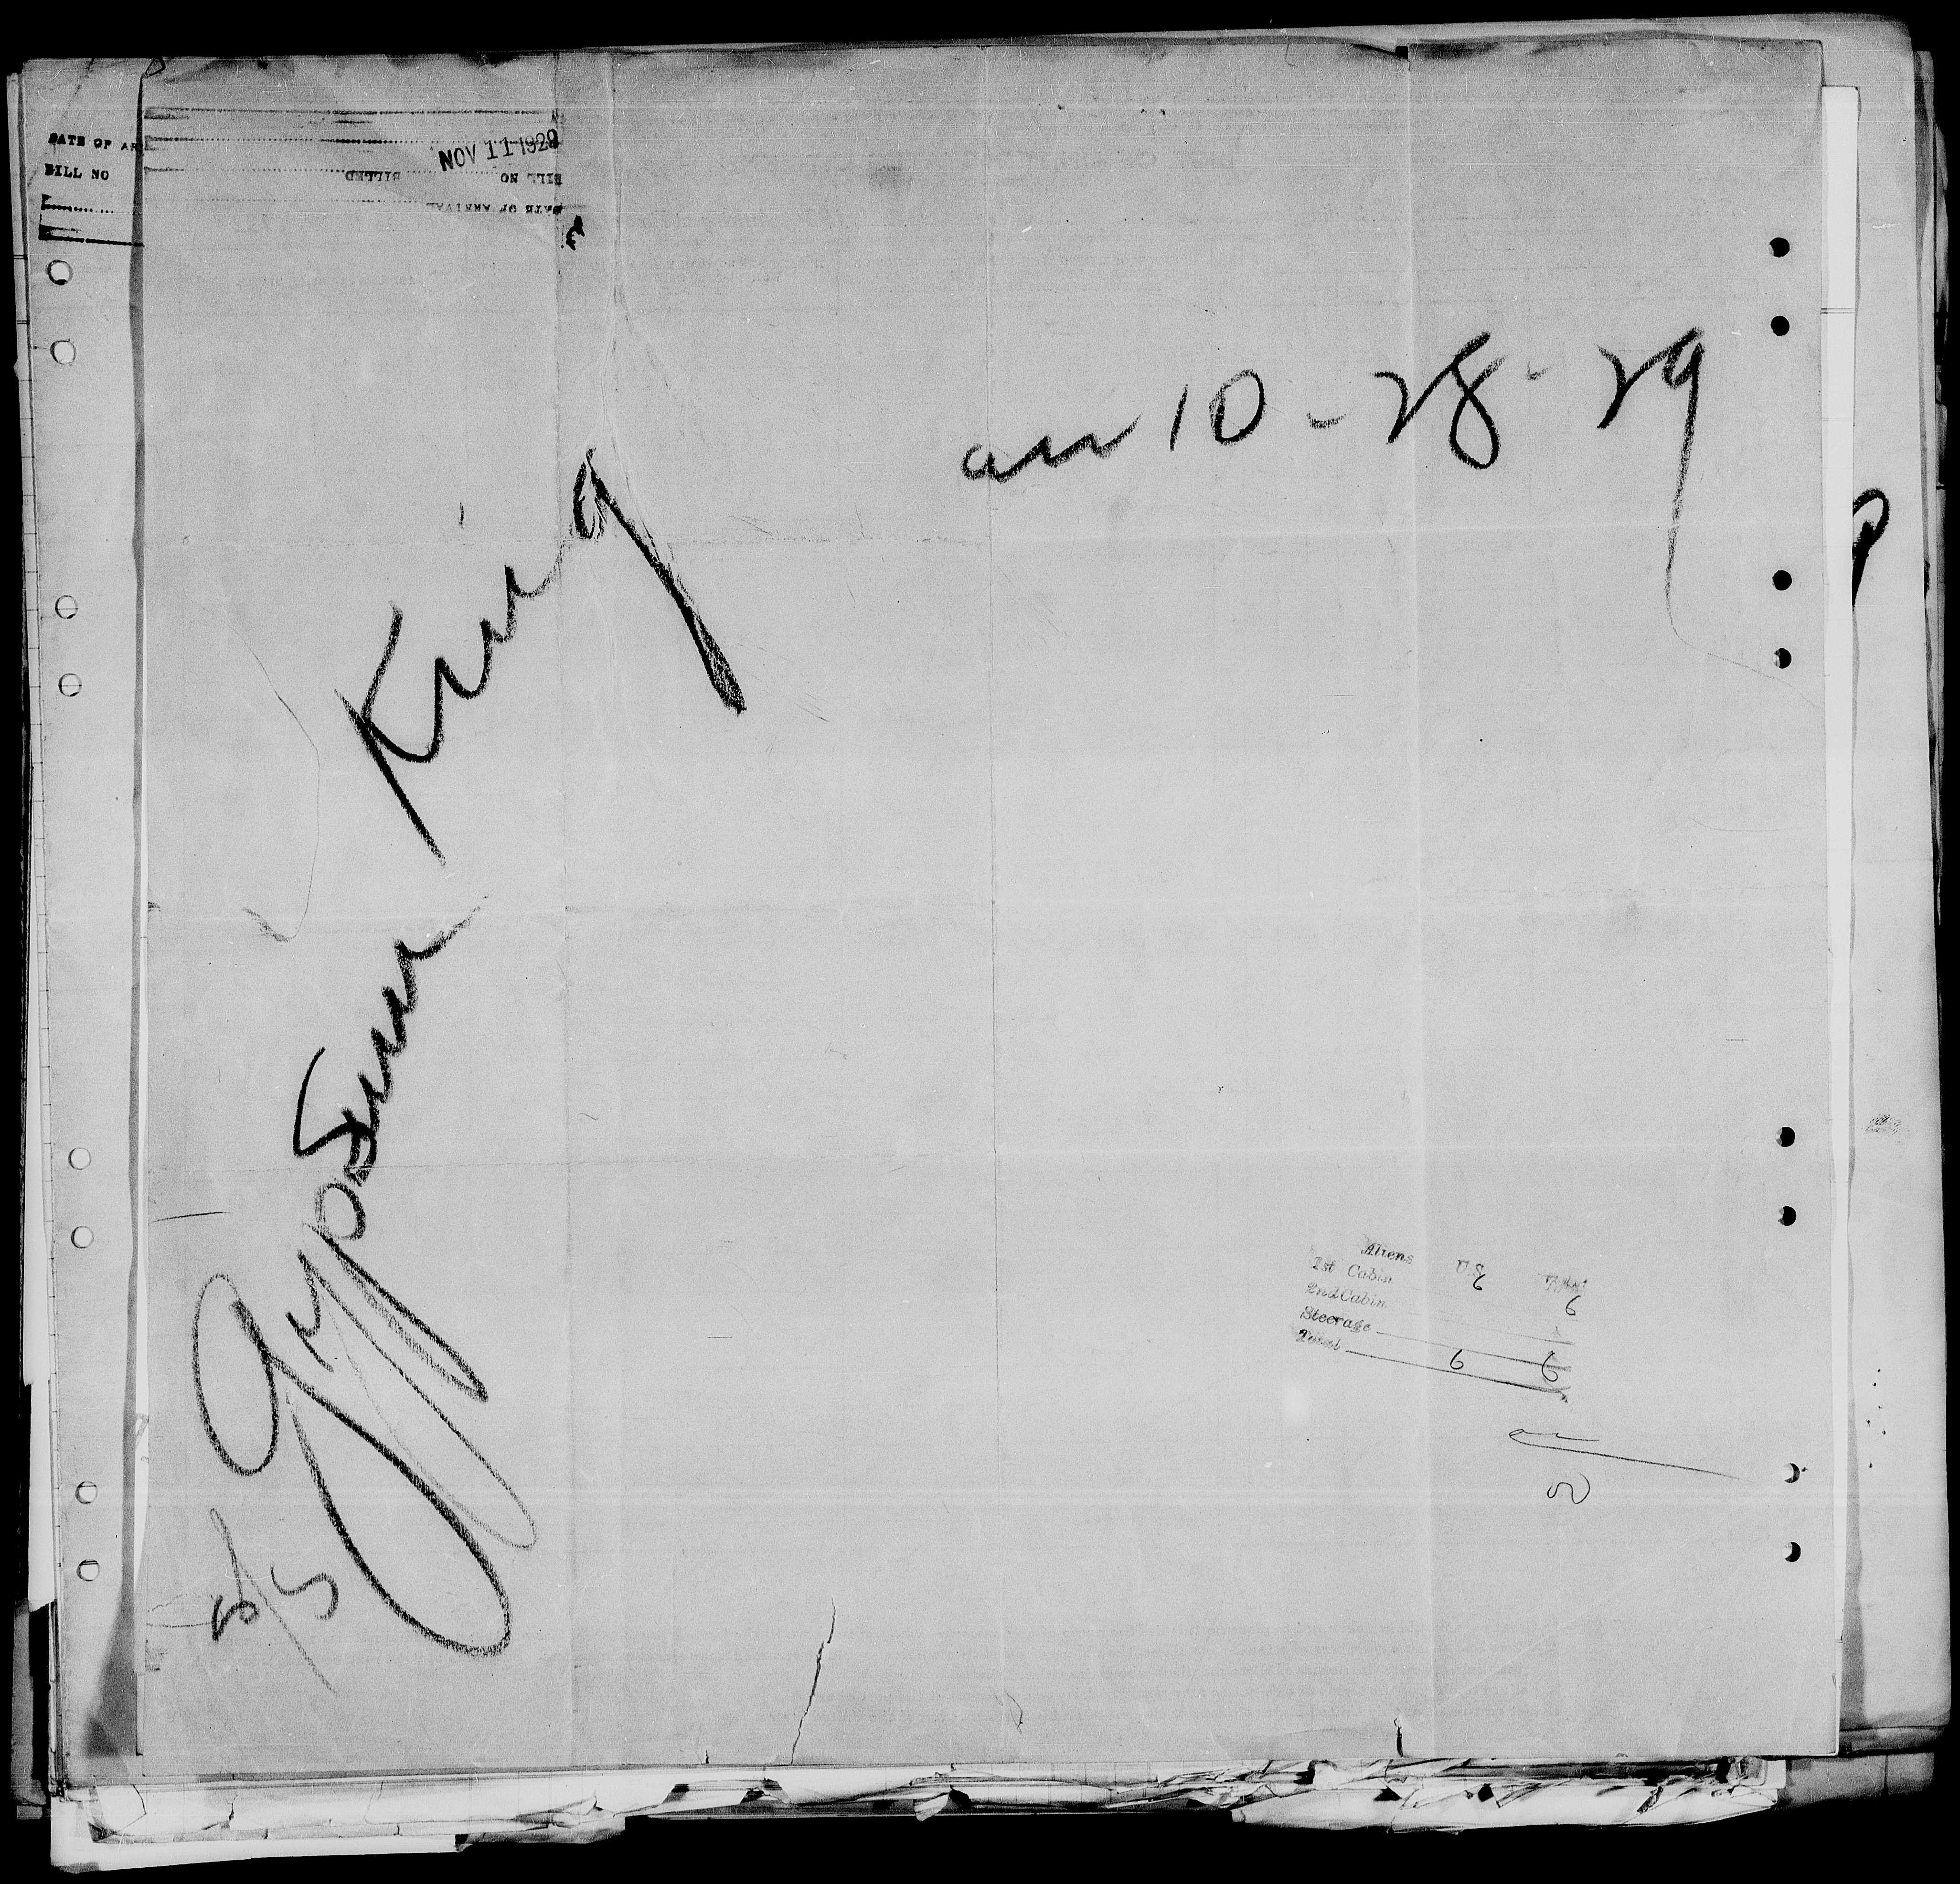 DATE OF AR
BILL NO
NOV 11 1929
BILL NO BILLED
DATE OF ARRIVAL
arr 10-28-29
S/S Gypsum King
Aliens U.S. Total
1st Cabin 6 6
2nd Cabin
Steerage
Total 6 6